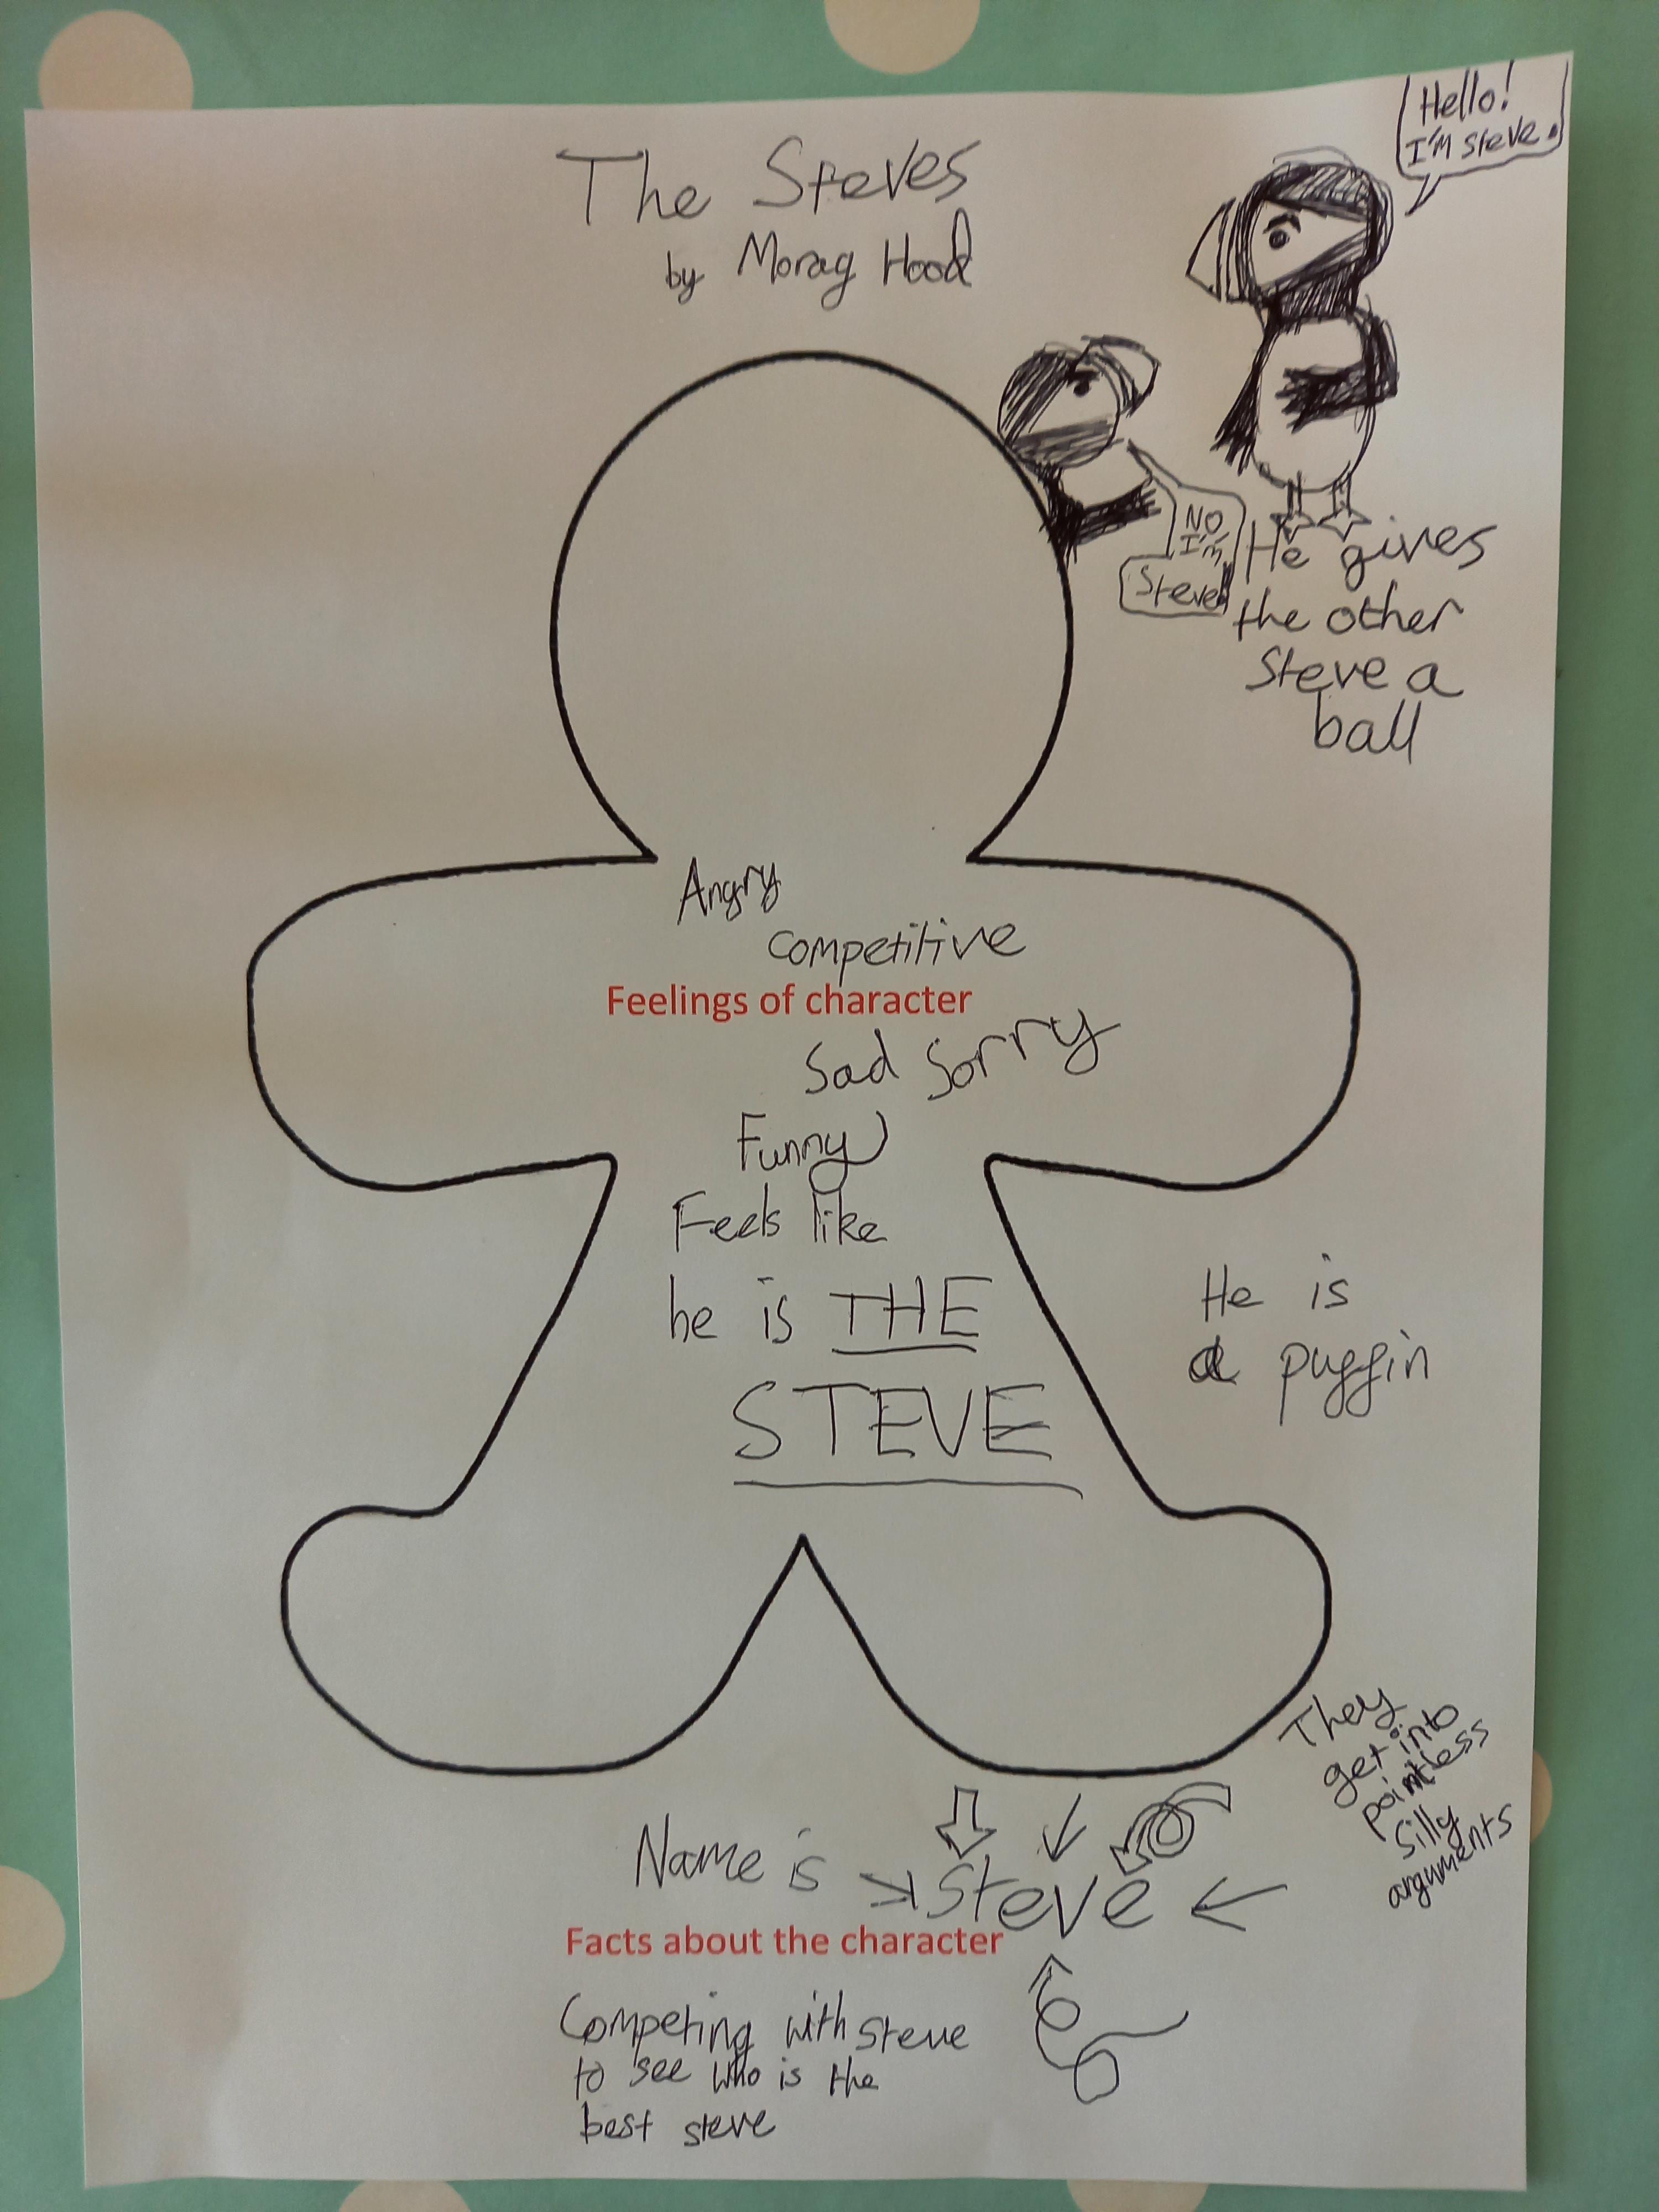 The Steves
by Morag Hood
Hello!
I'm Steve.
NO
I'm
Steve!
He gives
the other
Steve a
ball
Angry
competitive
Feelings of character
Sad Sorry
Funny
Feels like
he is THE
STEVE
He is
a puffin
They
get into
pointless
silly
arguments
Name is Steve
Facts about the character
Competing with Steve
to see who is the
best steve